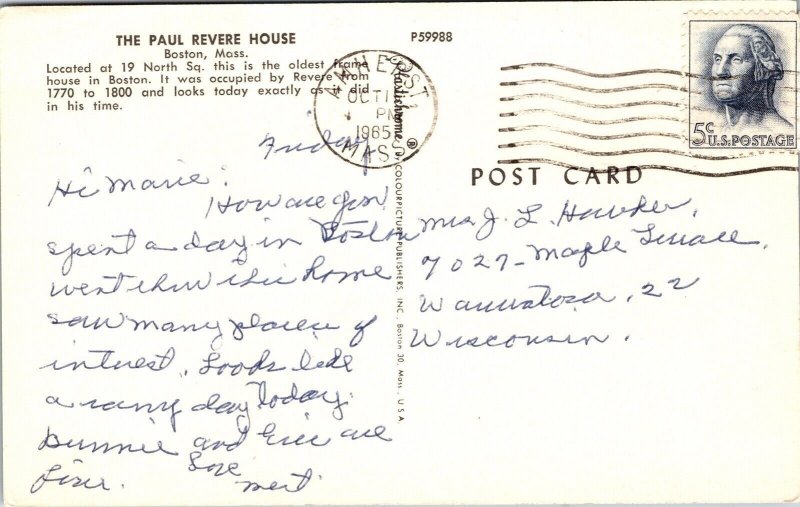 THE PAUL REVERE HOUSE
Boston, Mass.
Located at 19 North Sq. this is the oldest frame
house in Boston. It was occupied by Revere from
1770 to 1800 and looks today exactly as it did
in his time.
P59988
AMHERST
OCT
PM
1965
MASS
5c
U.S. POSTAGE
POST CARD
Plastichrome®
BY COLOURPICTURE PUBLISHERS, INC., Boston 30, Mass., U.S.A.
Friday
Hi Marie:
How are you.
spent a day in Boston
went thru this home
saw many places of
interest. Looks like
a rainy day today.
Bunnie and Eric are
fine.
Love
Mert
Mrs J. L. Hawker,
7027 - Maple Terrace,
Wauwatosa, 22
Wisconsin.